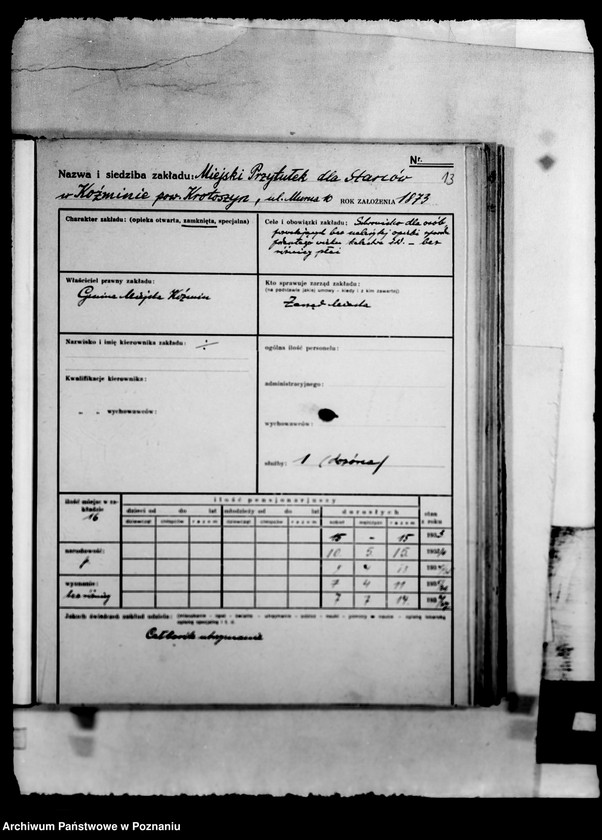 Nr.
Nazwa i siedziba zakładu: Miejski Przytułek dla Starców 13
w Koźminie pow. Krotoszyn, ul. ROK ZAŁOŻENIA 1873
Charakter zakładu: (opieka otwarta, zamknięta, specjalna)
Cele i obowiązki zakładu: Schronisko dla osób
bez opieki
wieku - bez
różnicy płci
Właściciel prawny zakładu:
Gmina Miejska Koźmin
Kto sprawuje zarząd zakładu:
(na podstawie jakiej umowy - kiedy i z kim zawartej):
Zarząd Miasta
Nazwisko i imię kierownika zakładu: ÷
Kwalifikacje kierownika:
" " wychowawców:
ogólna ilość personelu:
administracyjnego:
wychowawców:
służby: 1 (dozórca)
ilość miejsc w zakładzie
16
ilość pensjonarjuszy
dzieci od do lat
młodzieży od do lat
dorosłych
stan z roku
dziewcząt chłopców razem dziewcząt chłopców razem kobiet mężczyzn razem
15 - 15 193
narodowość: 10 5 15 193
p. 193
wyznanie: 7 4 11 193
bez różnicy 7 7 14 193
Jakich świadczeń zakład udziela: (mieszkanie - opał - światło - utrzymanie - odzież - nauki - pomocy w nauce - opieką lekarską
opieką specjalną i t. d.
Całkowite utrzymanie
Archiwum Państwowe w Poznaniu